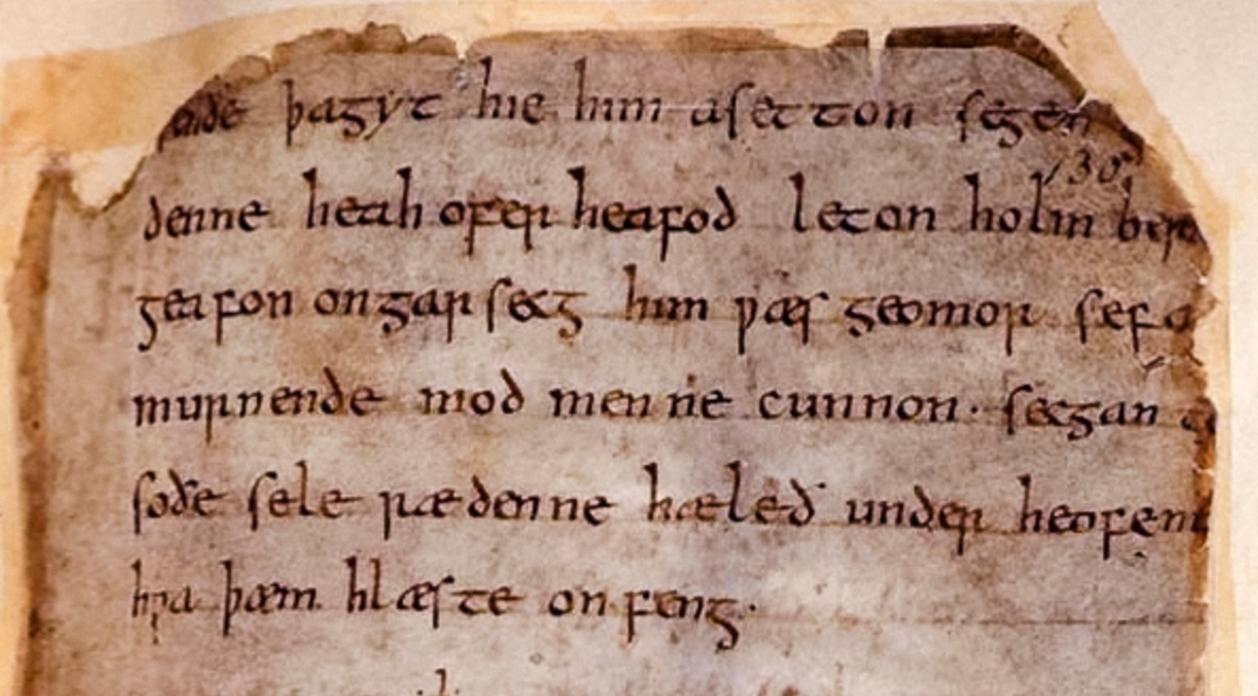 þagyt hie him asetton segen
130
denne heah ofer heafod leton holm
geafon ongarsecg him ƿæs geomor sefa
murnende mod men ne cunnon. secgan
soðe sele rædenne hæleð under heofen
hƿa þæm hlæste onfeng.